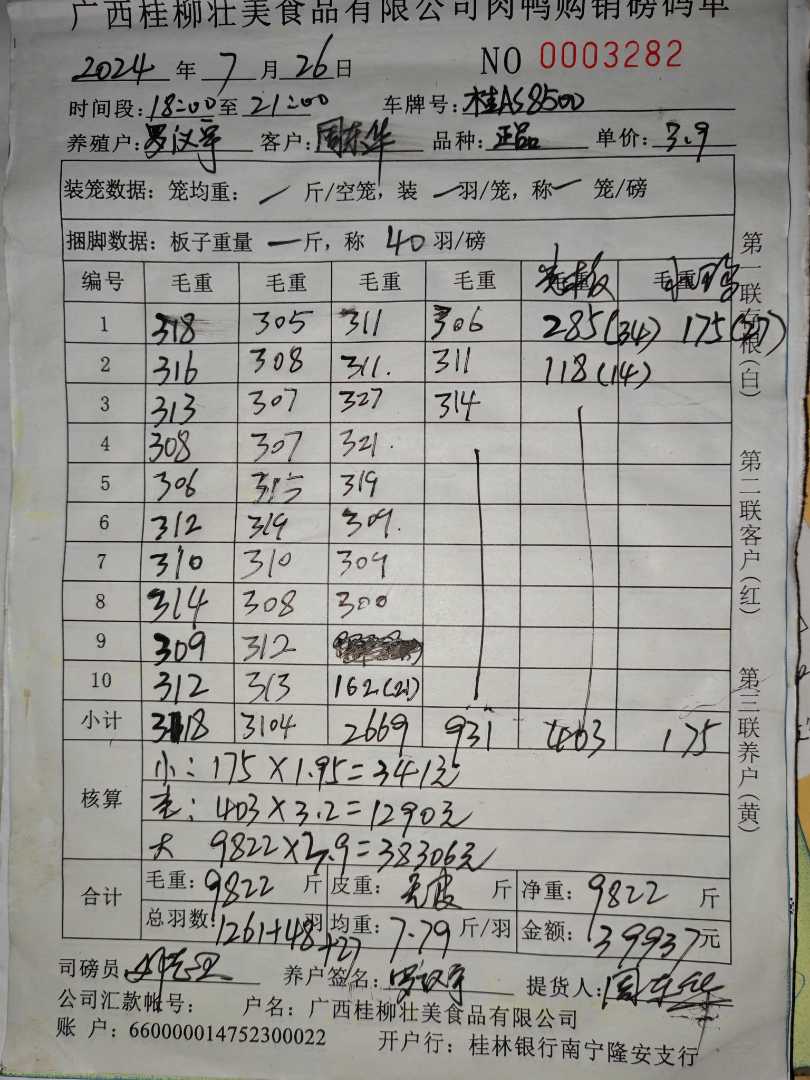 广西桂柳壮美食品有限公司肉鸭购销磅码单
2024 年 7 月 26 日 NO 0003282
时间段: 18:00 至 21:00 车牌号: 桂AS8500
养殖户: 罗汉宇 客户: 周东华 品种: 正品 单价: 3.9
装笼数据: 笼均重: / 斤/空笼, 装 一 羽/笼, 称 一 笼/磅
捆脚数据: 板子重量 一 斤, 称 40 羽/磅
编号 毛重 毛重 毛重 毛重 毛重 毛重
1 318 305 311 306 285(34) 175(27)
2 316 308 311. 311 118(14)
3 313 307 327 314
4 308 307 321.
5 306 315 319
6 312 319 309.
7 310 310 309
8 314 308 300
9 309 312
10 312 313 162(21)
小计 3118 3104 2669 931 403 175
核算 小: 175×1.95=341元
403×3.2=1290元
大 9822×3.9=38306元
合计 毛重: 9822 斤 皮重: 无皮 斤 净重: 9822 斤
总羽数: 1261+48+27 羽 均重: 7.79 斤/羽 金额: 39937 元
司磅员 养户签名: 罗汉宇 提货人: 周东华
公司汇款帐号: 户名: 广西桂柳壮美食品有限公司
账 户: 660000014752300022 开户行: 桂林银行南宁隆安支行
第一联存根(白)
第二联客户(红)
第三联养户(黄)